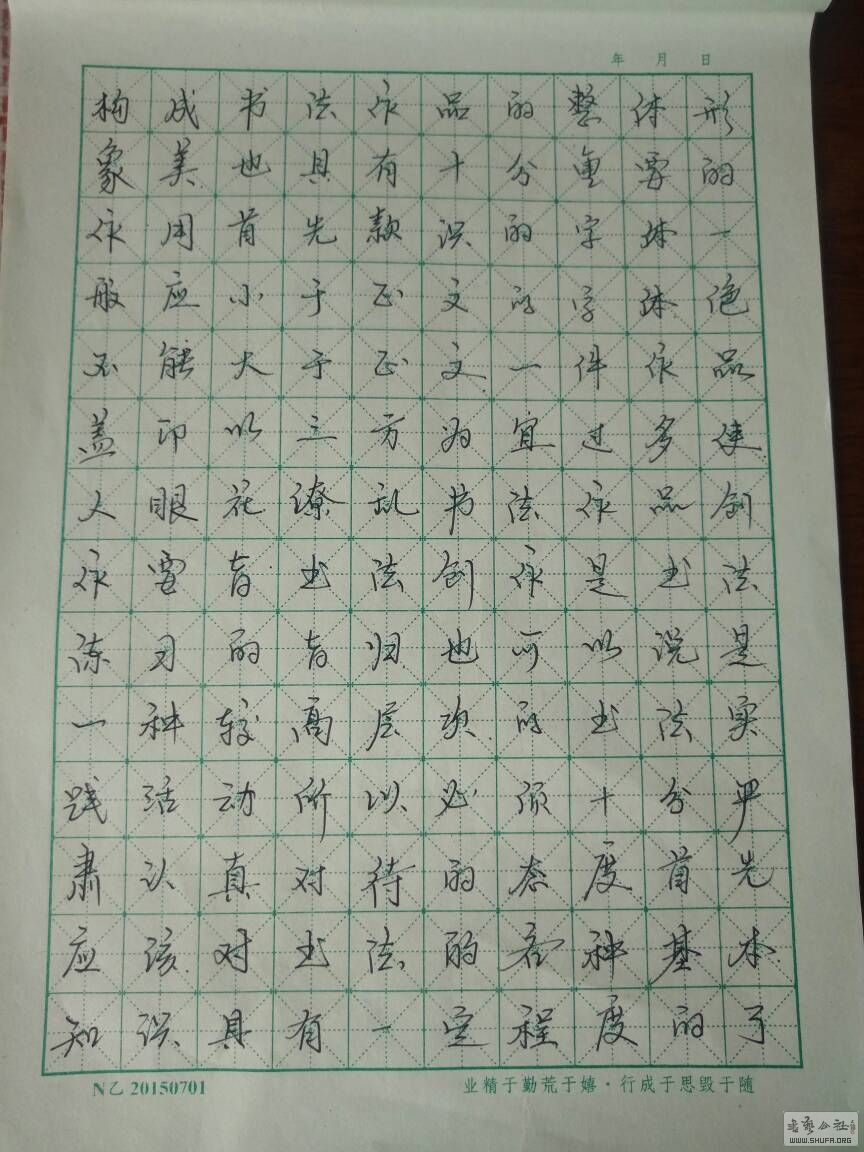 年 月 日
构成书法作品的整体形
象美也具有十分重要的
作用首先款识的字体一
般应小于正文的字体绝
不能大于正文一件作品
盖印以三方为宜过多使
人眼花缭乱书法作品创
作要旨书法创作是书法
练习的旨归也可以说是
一种较高层次的书法实
践活动所以必须十分严
肃认真对待的态度首先
应该对书法的各种基本
知识具有一定程度的了
N乙 20150701
业精于勤荒于嬉·行成于思毁于随
书艺公社
WWW.SHUFA.ORG